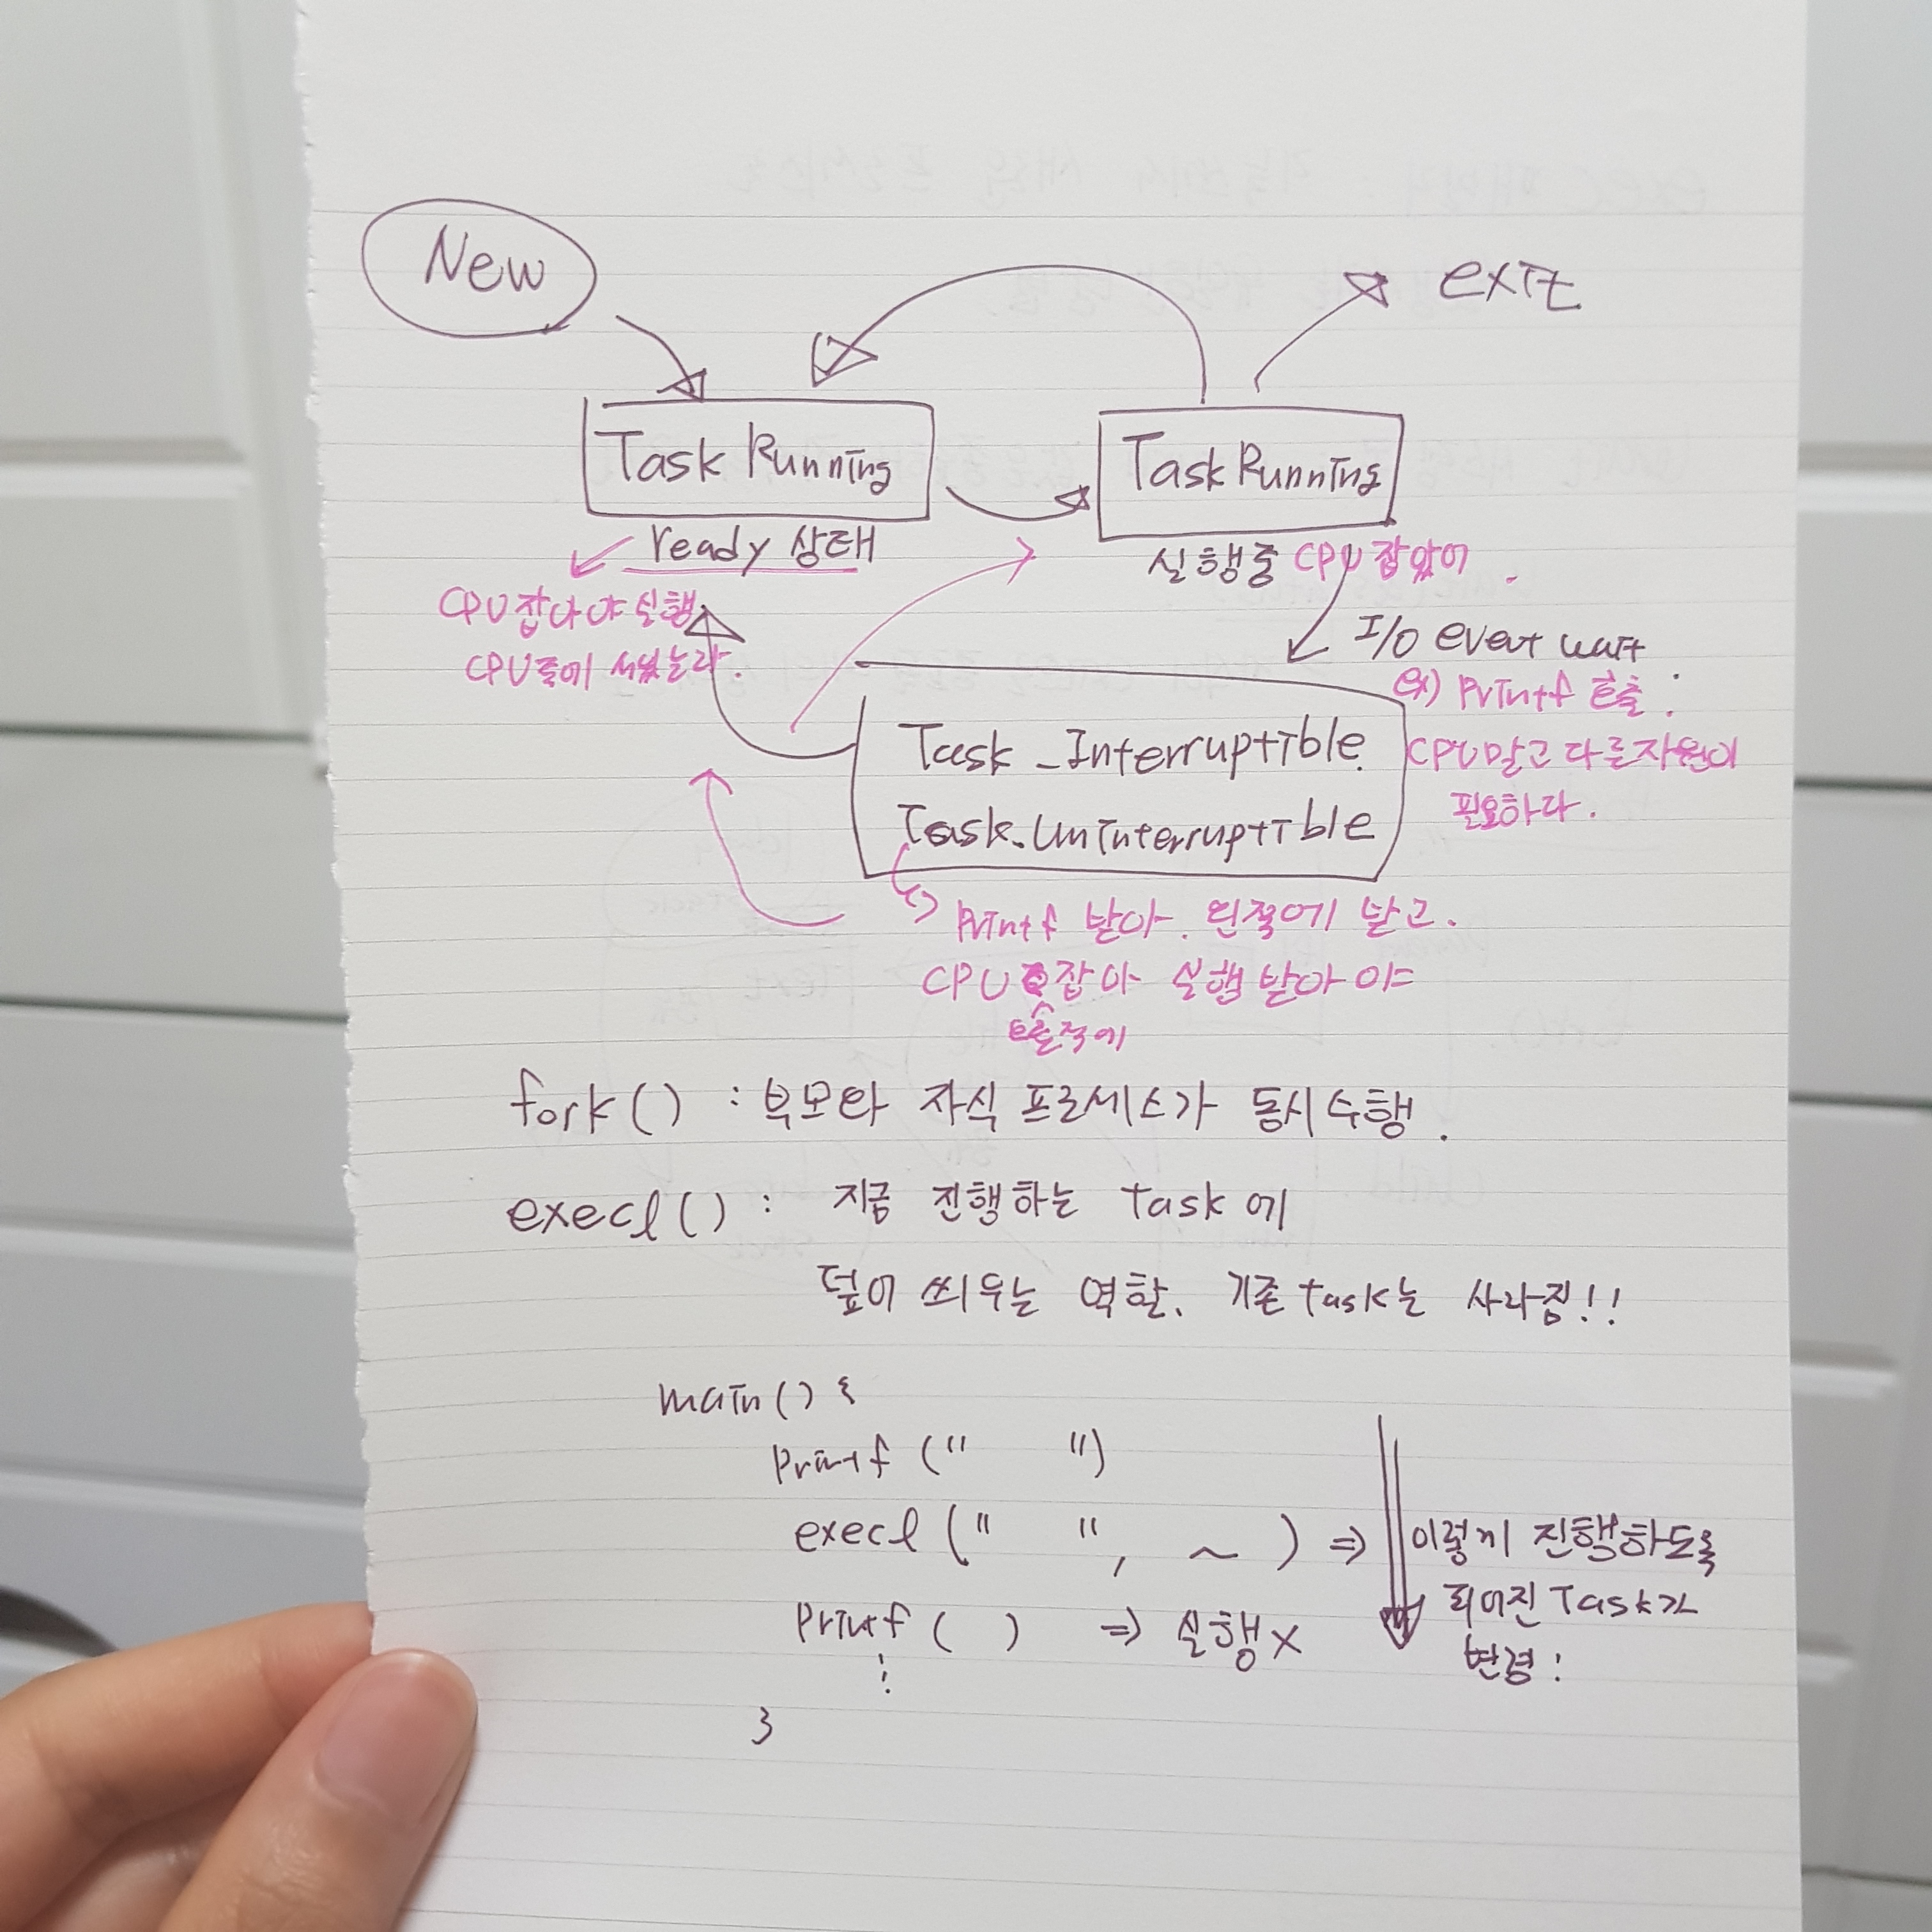 New
exit
Task Running
Task Running
ready 상태
실행중 CPU 잡았어.
CPU 잡아야 실행
CPU줄에 서있는라.
I/O event wait
ex) Printf 호출:
CPU말고 다른자원이
필요하다.
Task_Interruptible.
Task_UnInterruptible
Printf 받아. 왼쪽에 받고.
CPU 잡아 실행 받아야
오른쪽에
fork() : 부모와 자식 프로세스가 동시수행.
execl() : 지금 진행하는 task에
덮어 씌우는 역할. 기존 task는 사라짐!!
main() {
Printf (" ")
execl (" ", ~ ) ⇒ 이렇게 진행하도록
되어진 Task가
변경!
Printf ( ) ⇒ 실행 X
⋮
}